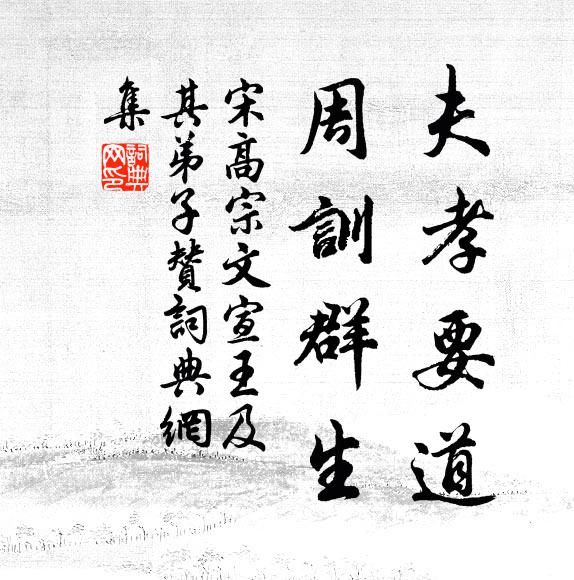 夫孝要道
周訓群生
宋高宗文宣王及
其弟子贊詞典網
集
詞典網印